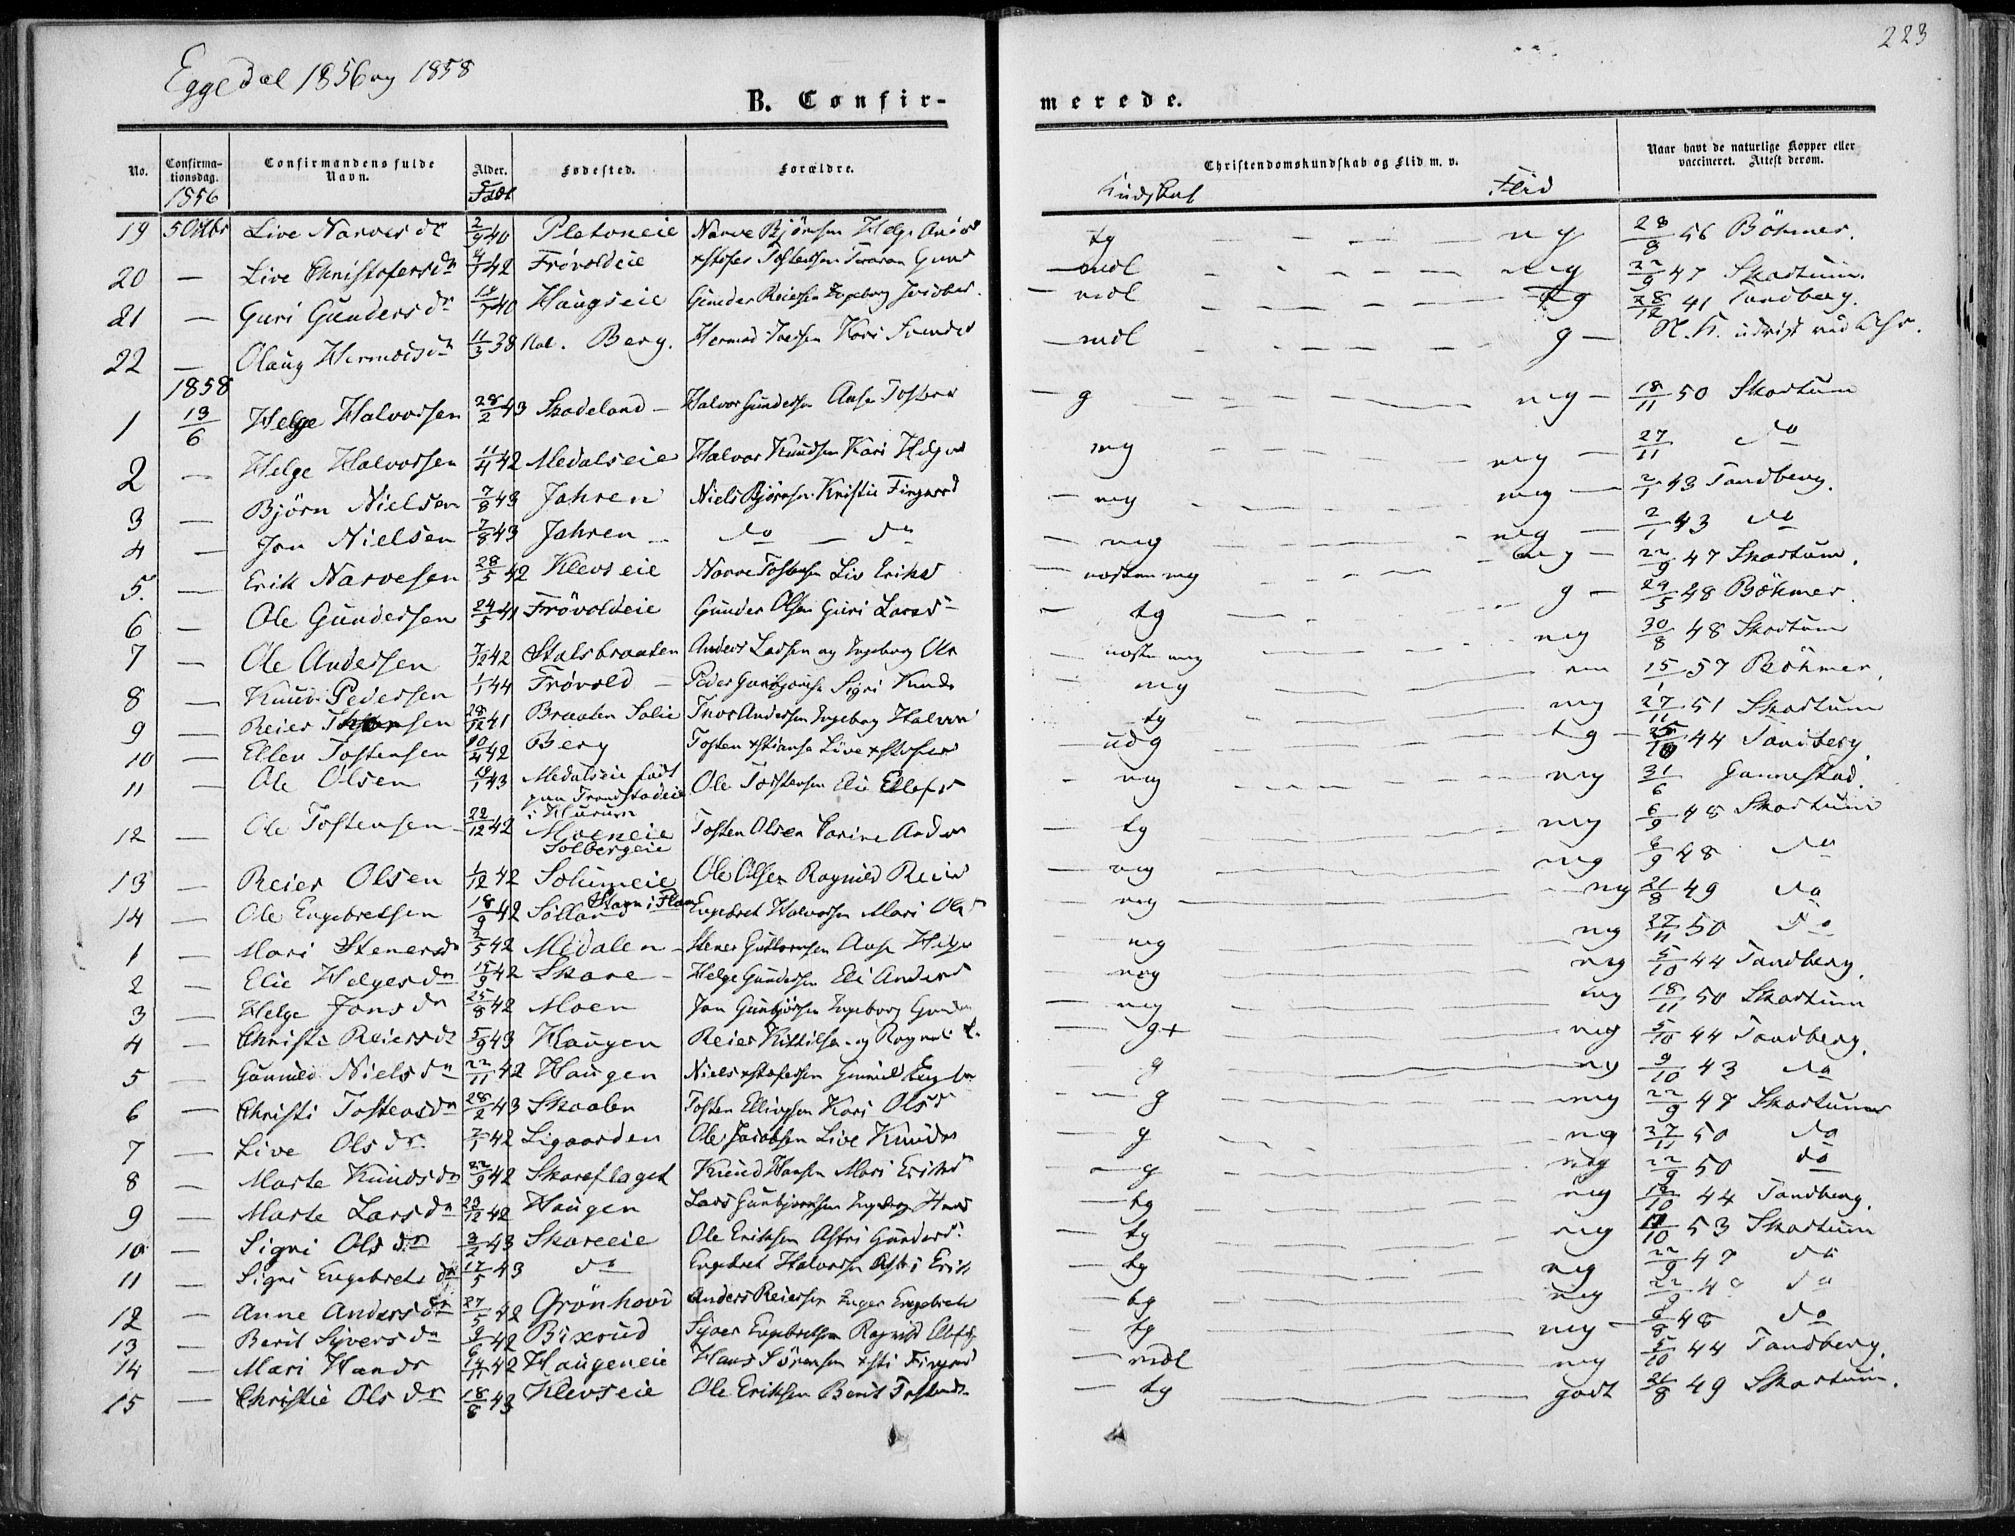 223
Eggedal 1856 og 1858
B. Confirmerede.
No. Confirmationsdag. Confirmandens fulde Navn. Alder. Fødested. Forældre. Christendomskundskab og Flid m. v. Naar havt de naturlige Kopper eller vaccineret. Attest derom.
1856 Født Kundskab Flid
19 5 Octbr Live Narvesdr 2/9 40 Pletoneie Narve Bjørnsen Helge tg mg 28/8 56 Böhmer.
20 — Live Christofersdr 4/7 42 Frövoldeie Xstofer Tostensen mdl mg 22/9 47 Skartum.
21 — Guri Gundersdr 40 Haugseie Gunder Reiersen Ingeborg mdl tg 28/12 41 Tandberg.
22 — Olaug Hermodsdr 11/3 38 Berg. Hermod Kari mdl g N. K.
1858
1 13/6 Helge Halvorsen 28/2 43 Skadeland Halvor Gundersen g mg 18/11 50 Skartum
2 — Helge Halvorsen 11/4 42 Medalseie Halvor Knudsen Kari mg mg 27/11 do
3 — Björn Nielsen 7/8 43 Jahren Niels Bjørnsen Kristie mg mg 2/1 43 Tandberg.
4 — Jon Nielsen 7/8 43 Jahren do do mg mg 2/1 43 do
5. — Erik Narvesen 28/5 42 Klevseie Narve Tostensen Liv Eriksd næsten mg mg 22/9 47 Skartum.
6 — Ole Gundersen 24/5 41 Frövoldeie Gunder Olsen Guri Larsd tg g 29/5 48 Böhmer.
7 — Ole Andersen 7/12 42 Stalsbraaten Anders Larsen og Ingeborg Ols næsten mg mg 30/8 48 Skartum
8 — Knud Pedersen 1/1 44 Frøvold Peder Gunbjørnsen Sigri Knuds mg 15/1 57 Böhmer.
9 — Reier Thorsen 28/12 41 Braaten Thor Andersen Ingeborg Halvor tg mg 27/11 51 Skartum
10 — Ellen Tostensen 42 Berg Tosten Live udg tg 44 Tandberg
11 — Ole Olsen 43 Medalseie født paa i Hurum Ole Tostensen Elie Ellefsd mg mg 31/6
12 — Ole Tostensen 22/12 42 Moeneie Solbergeie Tosten Olsen Karine Anders tg mg 6/9 48 Skartum
13 — Reier Olsen 1/12 42 Solumeie Ole Olsen Ragnild Reier mg mg 6/9 48 do
14 — Ole Engebretsen 18/9 42 Sölland Engebret Halvorsen Mari Ols mg mg 21/8 49 do
1 — Mari Stenersdr 2/5 42 Medalen Stener Guttormsen mg mg 27/11 50 do
2 — Elie Helgesdr 15/9 42 Skare Helge Gundersen Eli Andersd mg mg 5/10 44 Tandberg.
3 — Helge Jonsdr 25/8 42 Moen Jon Gunbjörsen Ingeborg mg mg 18/11 50 Skartum
4 — Christi Reiersdr 5/9 43 Haugen Reier Kittilsen og g+ mg 5/10 44 Tandberg.
5 — Gunnild Nielsdr 22/11 42 Haugen Niels Gunnild g mg 9/10 43 do
6 — Christi Tostensdr 28/2 43 Skaalen Tosten Ellingsen Kari Olsd g mg 22/9 47 Skartum
7 — Live Olsdr 7/1 42 Ligaarden Ole Jacobsen Live Knudsd g mg 27/11 50 do
8 — Marte Knudsdr 22/9 42 Skareflaget Knud Hansen Mari Eriksd g mg 22/9 50 do
9 — Marte Larsdr 23/12 42 Haugen Lars Gunbjørnsen Ingeborg tg mg 44 Tandberg.
10 — Sigri Olsdr 3/2 43 Skareeie Ole Eriksen Astri Gundersd. tg mg 53 Skartum
11 — Sigri Engebretsdr 17/5 43 do Engebret Halvorsen Astri Eriks tg mg 22/9 47 do
12 — Anne Andersdr 27/5 42 Grönhovd Anders Reiersen Inger Engebrets tg mg 22/9 do
13 — Berit Syversdr 9/6 42 Bixrud Syver Engebretsen Ragnild tg mg 8/8 48 do
14 — Mari Hansdr 14/11 42 Haugeneie Hans Sørensen mdl mg 5/10 44 Tandberg.
15 — Christie Olsdr 18/8 43 Klevseie Ole Eriksen Berit Tostensd tg godt 21/8 49 Skartum.